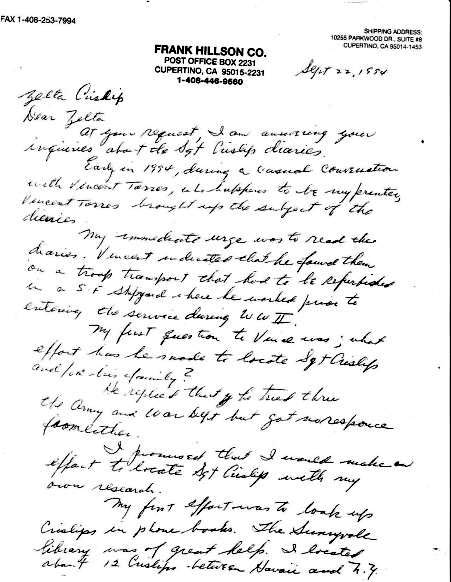 FAX 1-408-253-7994
SHIPPING ADDRESS:
10255 PARKWOOD DR., SUITE #8
CUPERTINO, CA 95014-1453
FRANK HILLSON CO.
POST OFFICE BOX 2231
CUPERTINO, CA 95015-2231
1-408-446-9560
Sept 22, 1994
Zelta Crislip
Dear Zelta
At your request I am answering your
inquiries about the Sgt Crislip diaries.
Early in 1994, during a casual conversation
with Vincent Torres, who happens to be my printer,
Vincent Torres brought up the subject of the
diaries.
My immediate urge was to read the
diaries. Vincent indicated that he found them
on a troop transport that had to be refurbished
in a S F Shipyard where he worked prior to
entering the service during WW II.
My first question to Vince was; what
effort has he made to locate Sgt Crislip
and/or his family?
He replied that he tried thru
the Army and War Dept but got no response
from either.
I promised that I would make an
effort to locate Sgt Crislip with my
own research.
My first effort was to look up
Crislips in phone books. The Sunnyvale
library was of great help. I located
about 12 Crislips between Hawaii and N.Y.